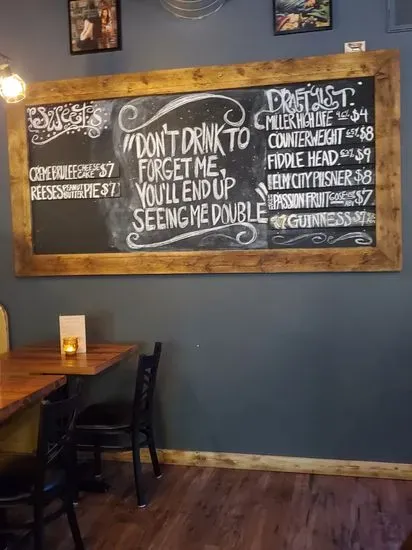 SWEETS
CREME BRULEE CHEESE CAKE $7
REESES PEANUT BUTTER PIE $7
"DON'T DRINK TO
FORGET ME,
YOU'LL END UP
SEEING ME DOUBLE"
DRAFT LIST:
MILLER HIGH LIFE $4
COUNTERWEIGHT $8
FIDDLE HEAD $9
ELM CITY PILSNER $8
PASSION FRUIT GOSE $7
GUINNESS $7